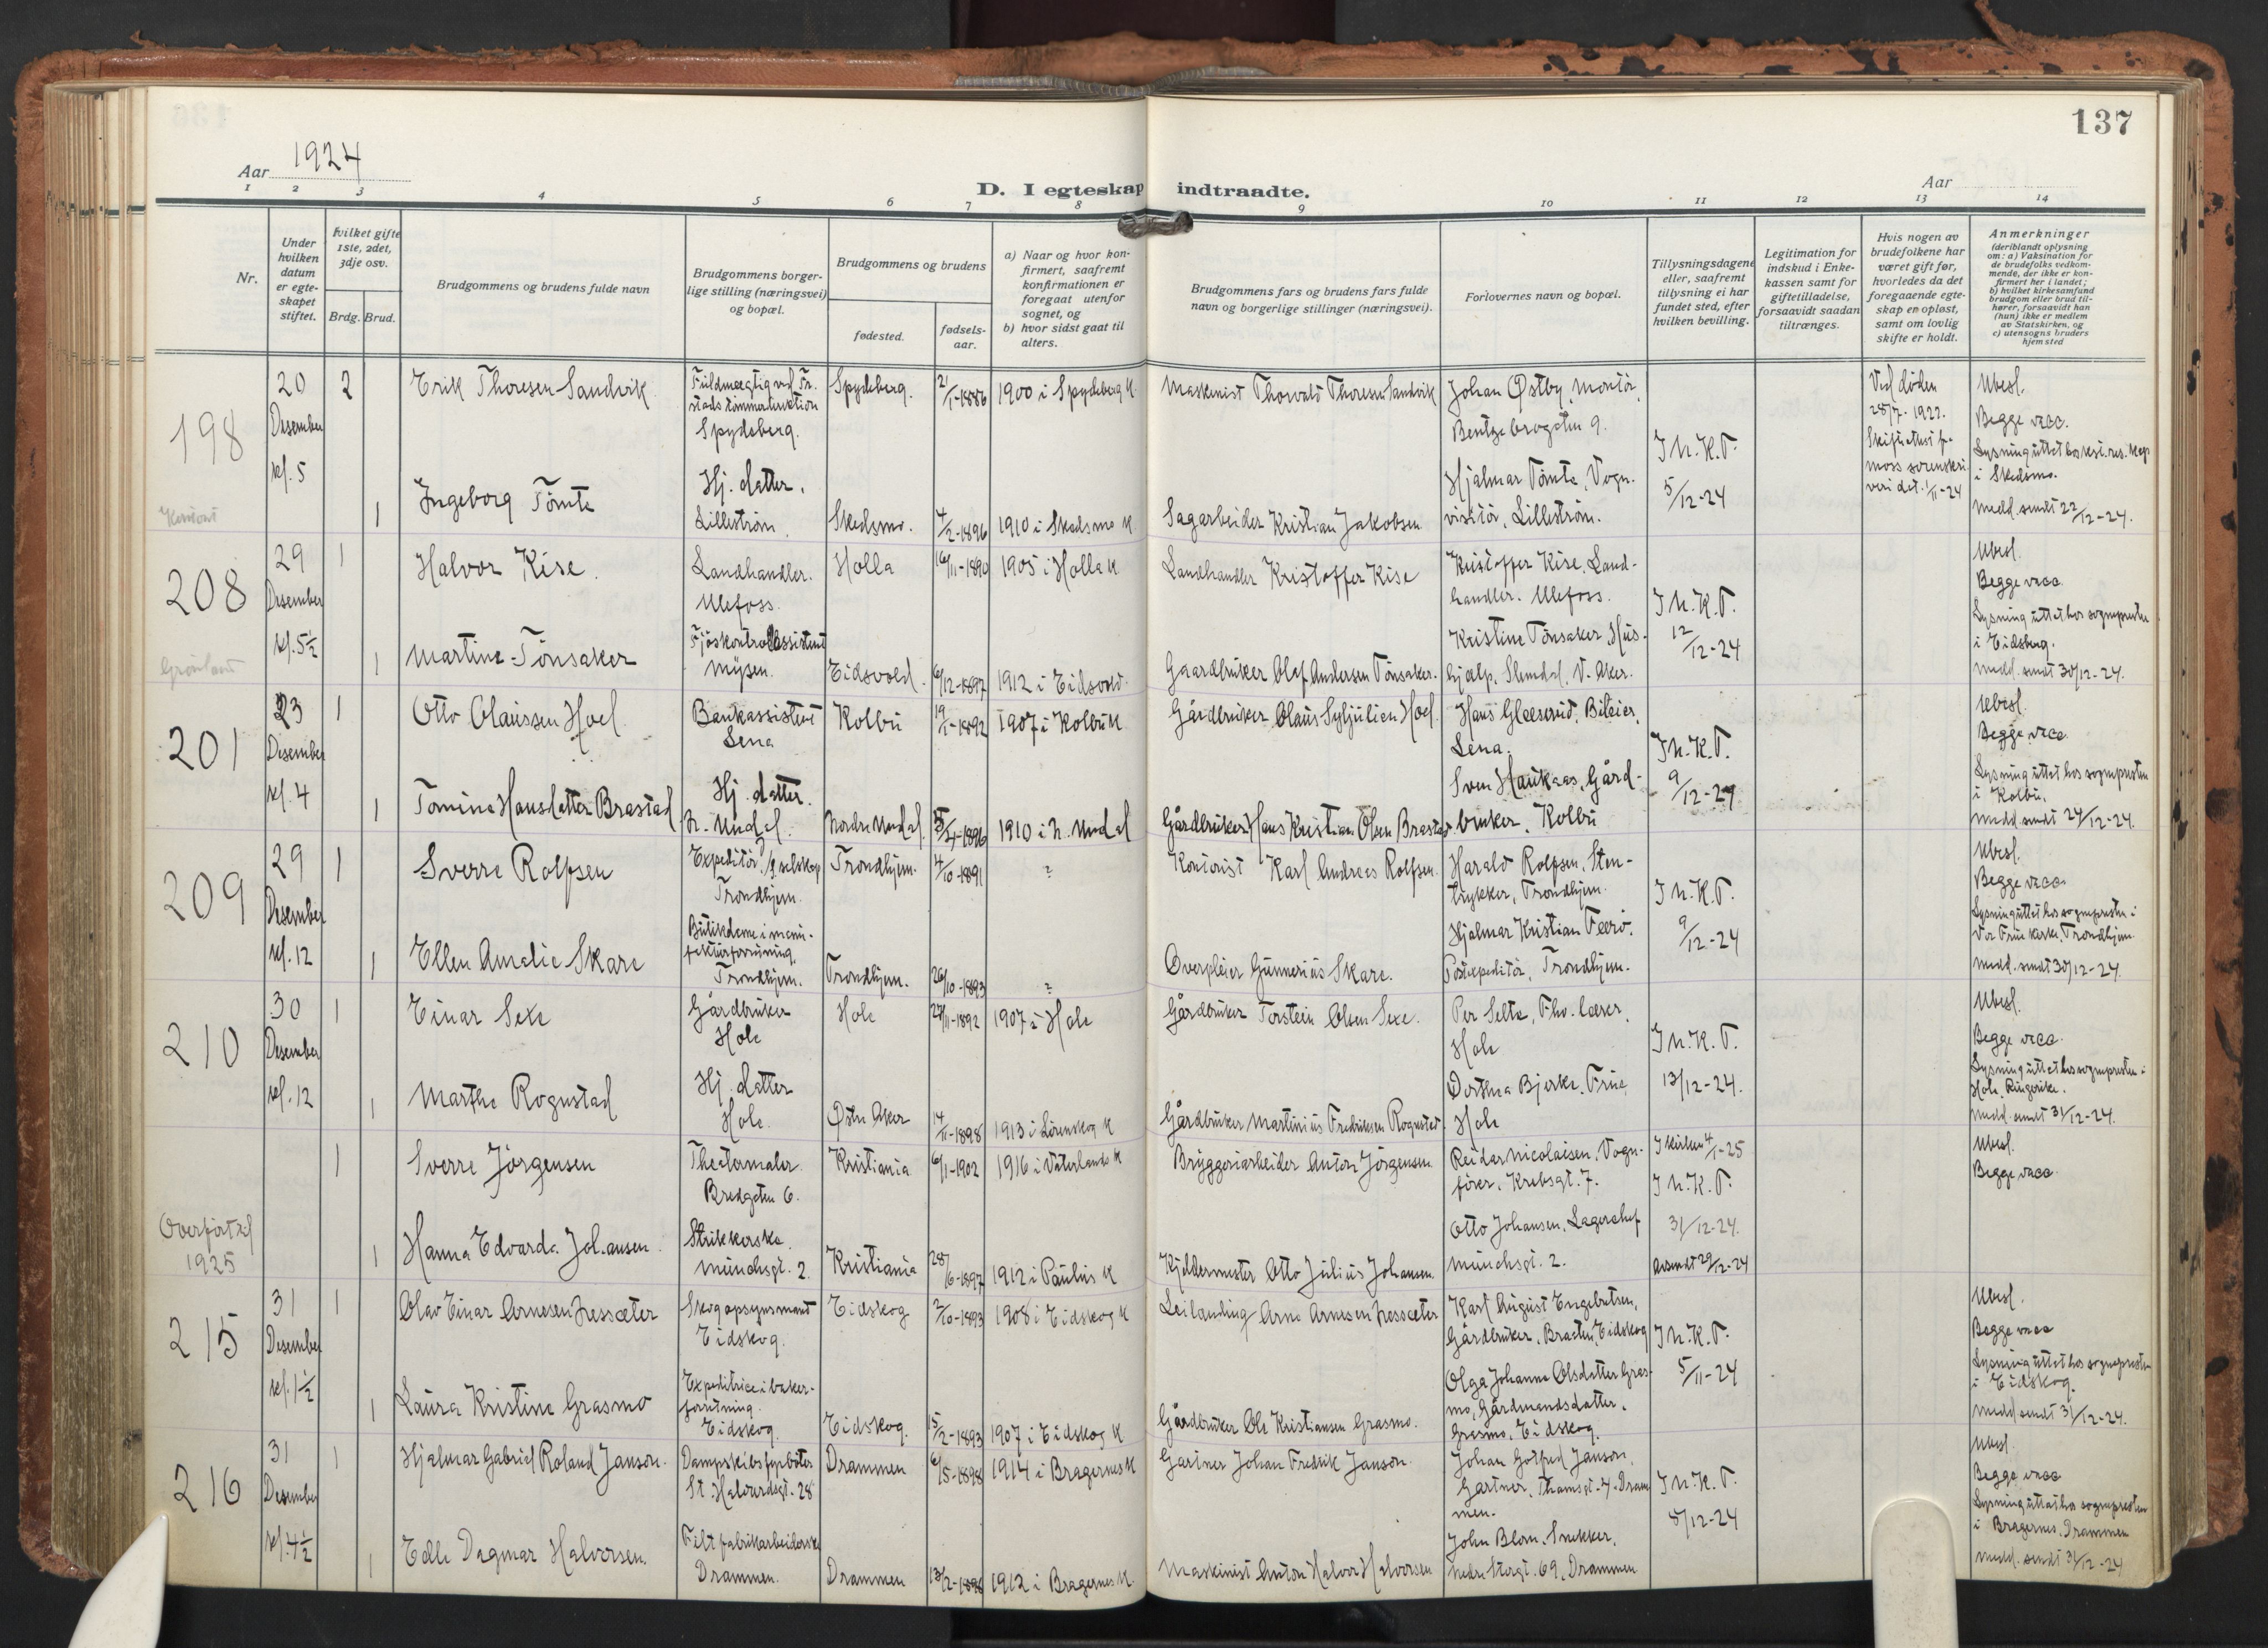 137
Aar 1924
D. I egteskap indtraadte.
Aar
1 2 3 4 5 6 7 8 9 10 11 12 13 14
Nr.
Under hvilken datum er egteskapet stiftet.
Hvilket gifte 1ste, 2det, 3dje osv.
Brdg. Brud.
Brudgommens og brudens fulde navn
Brudgommens borgerlige stilling (næringsvei) og bopæl.
Brudgommens og brudens
fødested.
fødselsaar.
a) Naar og hvor konfirmert, saafremt konfirmationen er foregaat utenfor sognet, og
b) hvor sidst gaat til alters.
Brudgommens fars og brudens fars fulde navn og borgerlige stillinger (næringsvei).
Forlovernes navn og bopæl.
Tillysningsdagene eller, saafremt tillysning ei har fundet sted, efter hvilken bevilling.
Legitimation for indskud i Enkekassen samt for giftetilladelse, forsaavidt saadan tiltrænges.
Hvis nogen av brudefolkene har været gift før, hvorledes da det foregaaende egteskap er opløst, samt om lovlig skifte er holdt.
Anmerkninger (deriblandt oplysning om: a) Vaksination for de brudefolks vedkommende, der ikke er konfirmert her i landet; b) hvilket kirkesamfund brudgom eller brud tilhører, forsaavidt han (hun) ikke er medlem av Statskirken, og c) utensogns bruders hjemsted
198
20 Desember kl. 5
2
Erik Thoresen Sandvik
Spydeberg.
Spydeberg.
21/1-1886
1900 i Spydeberg K.
Maskinist Thorvald Thoresen Sandvik
Johan Østby, Montør,
Bentsebrogaten 9.
I N.K.T.
5/12-24
Ved døden
28/7-1922.
Ubesl.
Begge vacc.
i Skedsmo.
Medd. sendt 22/12-24.
Kontoret
1
Ingeborg Tømte
Hj. datter.
Lillestrøm.
Skedsmo.
4/2-1896
1910 i Skedsmo K
Sagarbeider Kristian Jakobsen
Hjalmar Tømte, Vogn-
visitør, Lillestrøm.
208
29 Desember kl. 5½
1
Halvor Kise.
Landhandler.
Ulefoss.
Holla
16/11-1890
1905 i Holla K
Landhandler Kristoffer Kise
Kristoffer Kise, Land-
handler. Ulefoss.
I N.K.T.
12/12-24
Ubesl.
Begge vacc.
Lysning uttat hos sognepresten
i Eidsberg.
Medd. sendt 30/12-24.
Grønland
1
Martine Tønsaker
Fjøskontrollassistent
Mysen.
Eidsvold.
6/12-1897
1912 i Eidsvold.
Gaardbruker Olaf Andersen Tønsaker.
Kristine Tønsaker, Hus-
hjælp, Slemdal. V. Aker.
201
23 Desember kl. 4
1
Otto Olaussen Hoel
Bankassistent
Lena
Kolbu
19/1-1892
1907 i Kolbu K
Gårdbruker Olaus Syljulien Hoel.
Hans Glæserud, Bileier,
Lena.
I N.K.T.
9/12-24
Ubesl.
Begge vacc.
Lysning uttat hos sognepresten
i Kolbu.
Medd. sendt 24/12-24.
1
Tomine Hansdatter Brastad
Hj. datter.
N. Undal.
Nordre Undal.
1910 i N. Undal
Gårdbruker Hans Kristian Olsen Brastad.
Sven Haukaas, Gård-
bruker. Kolbu
209
29 Desember kl. 12
1
Sverre Rolfsen
Trondhjem.
Trondhjem.
4/10-1891
?
Kontorist Karl Andreas Rolfsen.
Harald Rolfsen, Sten-
trykker, Trondhjem.
I N.K.T.
9/12-24
Ubesl.
Begge vacc.
Lysning uttat hos sognepresten i
Vor Frue kirke, Trondhjem.
Medd. sendt 30/12-24.
1
Ellen Amalie Skare
Butikdame i manu-
fakturforretning,
Trondhjem.
Trondhjem.
26/10-1893
?
Overpleier Gunnerius Skare.
Hjalmar Kristian Feerø.
Postexpeditør, Trondhjem.
210
30 Desember kl. 12
1
Einar Sexe
Gårdbruker
Hole
Hole
27/11-1892
1907 i Hole
Gårdbruker Torstein Olsen Sexe.
Per Selte, Fhv. lærer,
Hole
I N.K.T.
13/12-24.
Ubesl.
Begge vacc.
Lysning uttat hos sognepresten i
Hole, Ringerike.
Medd. sendt 31/12-24.
1
Marthe Rognstad
Hj. datter
Hole.
Østre Aker
14/11-1898
1913 i Lørenskog K
Gårdbruker Martinius Fredriksen Rognstad.
Dorthea Bjerke, Frue,
Hole
1
Sverre Jörgensen
Theatermaler
Bredgaten 6.
Kristiania
6/1-1902
1916 i Vaterlands K
Bryggeriarbeider Anton Jörgensen
Reidar Nicolaisen, Vogn-
fører, Krebsgt. 7.
I kirken 4/1-25
I N.K.T.
31/12-24.
Avsendt 29/12-24
Ubesl.
Begge vacc.
Overført til
1925
1
Hanna Edvarda Johansen.
Strikkerske.
Munchsgt. 2.
Kristiania
28/6-1897
1912 i Paulus K
Kjeldermester Otto Julius Johansen.
Otto Johansen, Lagerchef
Munchsgt. 2.
215
31 Desember kl. 1½
1
Olav Einar Arnesen Jessæter
Skogopsynsmand
Eidskog.
Eidskog
2/10-1893
1908 i Eidskog K
Leilanding Arne Arnesen Jessæter
Karl August Engebretsen,
Gårdbruker, Braaten, Eidskog
I N.K.T.
5/11-24
Ubesl.
Begge vacc
Lysning uttat hos sognepresten
i Eidskog.
Medd. sendt 31/12-24.
1
Laura Kristine Grasmo
Expeditrice i baker-
forretning.
Eidskog.
Eidskog.
5/2-1893
1907 i Eidskog K
Gårdbruker Ole Kristiansen Grasmo.
Olga Johanne Olsdatter Gras-
mo, Gårdmandsdatter.
Grasmo, Eidskog.
216
31 Desember kl. 4½
1
Hjalmar Gabriel Roland Janson.
Dampskibsfyrbøter
St. Halvardsgt. 28
Drammen
6/5-1898
1914 i Bragernes K
Gartner Johan Fredrik Janson.
Johan Gotfred Janson,
Gartner, Thamsgt. 7. Dram-
men.
I N.K.T.
8/12-24
Ubesl.
Begge vacc
Lysning uttat hos sognepresten
i Bragernes, Drammen
Medd. sendt 31/12-24
1
Edle Dagmar Halvorsen.
Filtfabrikarbeiderske
Drammen.
Drammen
1912 i Bragernes K.
Maskinist Anton Halvor Halvorsen
John Blom, Snekker,
Nedre Storgt. 69, Drammen